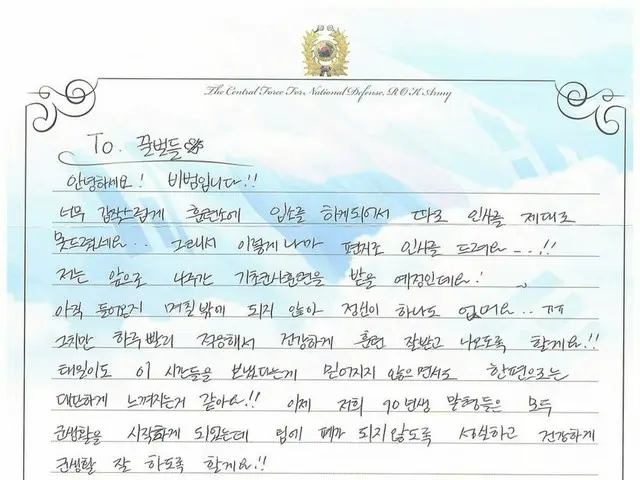 The Central Force For National Defense, R.O.K Army
To. 꿀벌들
안녕하세요! 비범입니다!!
너무 갑작스럽게 훈련소에 입소를 하게되어서 따로 인사를 제대로
못드렸네요.. 그래서 이렇게나마 편지로 인사를 드려요...!!
저는 앞으로 4주간 기초군사훈련을 받을 예정인데요!
아직 들어온지 며칠밖에 되지 않아 정신이 하나도 없어요.. ㅠㅠ
그치만 하루빨리 적응해서 건강하게 훈련 잘받고 나오도록 할게요!!
태일이도 이 시간들을 보냈다는게 믿어지지 않으면서도 한편으로는
대단하게 느껴지는거 같아요!! 이제 저희 90년생 맏형들은 모두
군생활을 시작하게 되었는데 팀에 폐가 되지않도록 성실하고 건강하게
군생활 잘 하도록 할게요!!